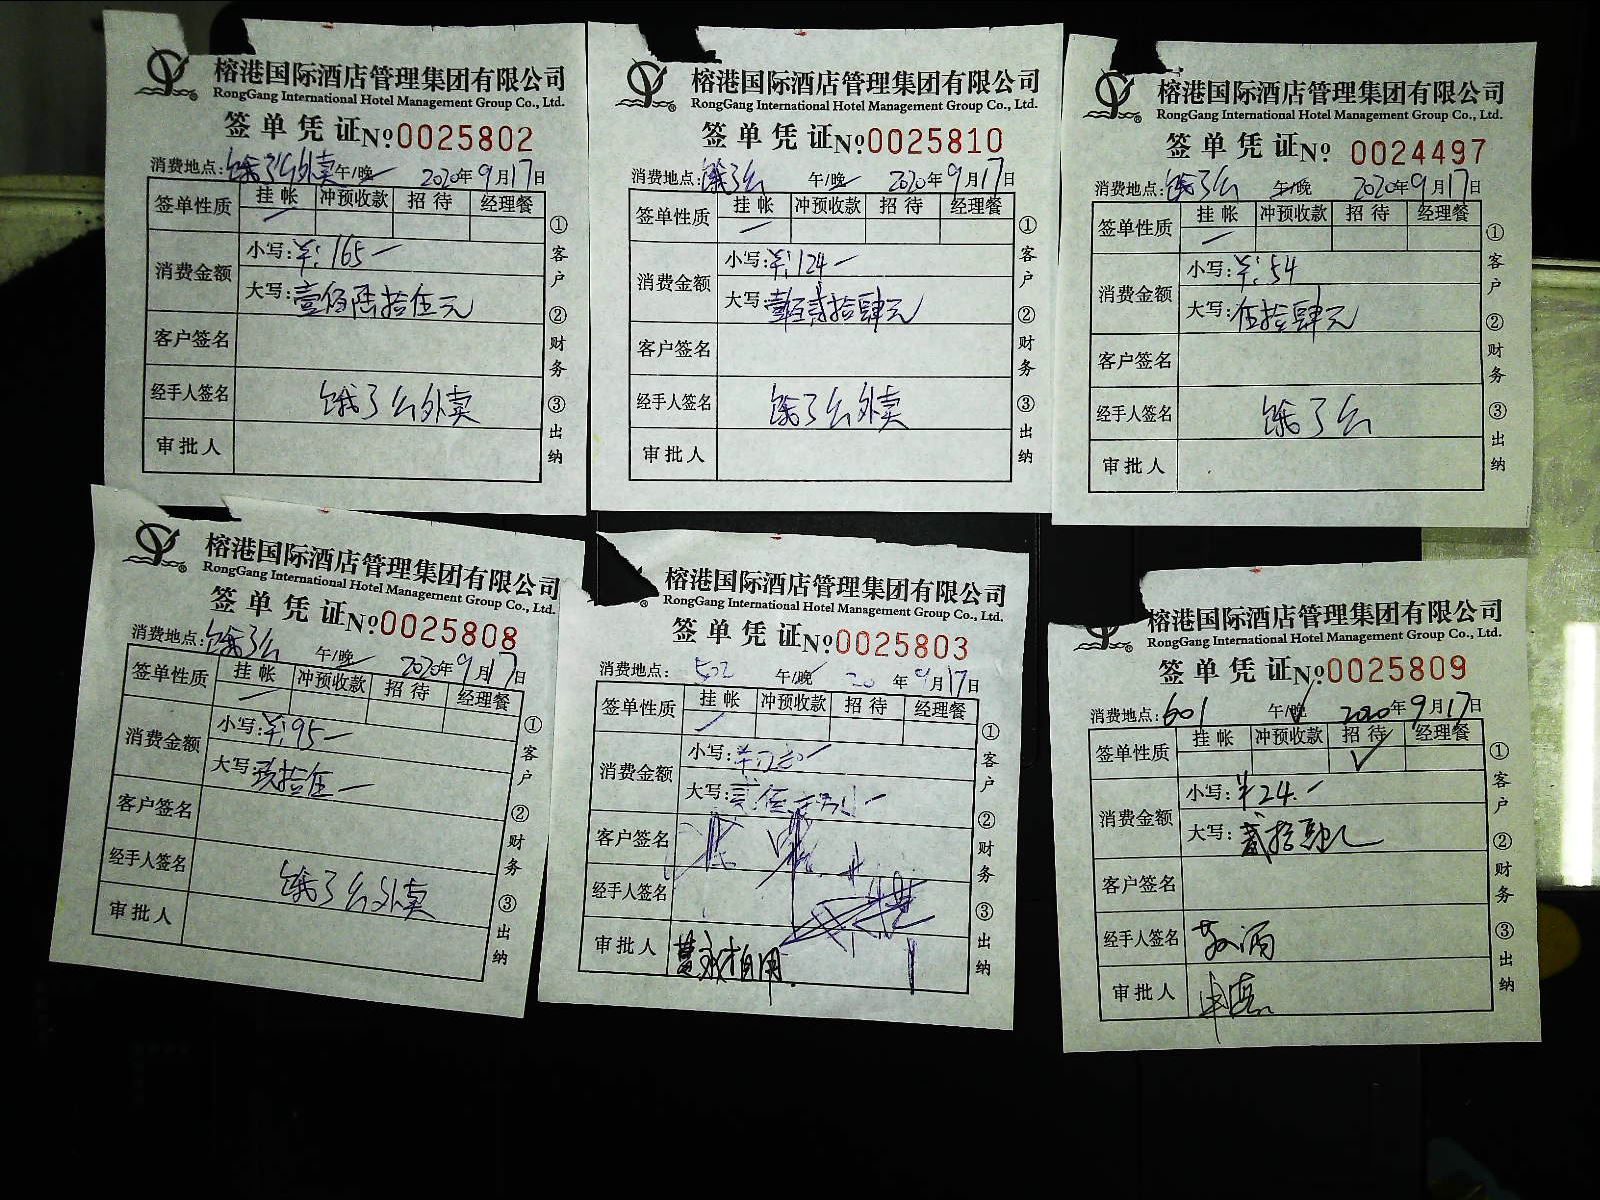 榕港国际酒店管理集团有限公司
RongGang International Hotel Management Group Co., Ltd.
签单凭证 № 0025802
消费地点: 饿了么外卖 午/晚 2020年9月17日
签单性质 挂帐 冲预收款 招待 经理餐
消费金额 小写: ¥: 165一
大写: 壹佰陆拾伍元
客户签名
经手人签名 饿了么外卖
审批人
①客户 ②财务 ③出纳
榕港国际酒店管理集团有限公司
RongGang International Hotel Management Group Co., Ltd.
签单凭证 № 0025810
消费地点: 饿了么 午/晚 2020年9月17日
签单性质 挂帐 冲预收款 招待 经理餐
消费金额 小写: ¥: 124一
大写: 壹佰贰拾肆元
客户签名
经手人签名 饿了么外卖
审批人
①客户 ②财务 ③出纳
榕港国际酒店管理集团有限公司
RongGang International Hotel Management Group Co., Ltd.
签单凭证 № 0024497
消费地点: 饿了么 午/晚 2020年9月17日
签单性质 挂帐 冲预收款 招待 经理餐
消费金额 小写: ¥: 54
大写: 伍拾肆元
客户签名
经手人签名 饿了么
审批人
①客户 ②财务 ③出纳
榕港国际酒店管理集团有限公司
RongGang International Hotel Management Group Co., Ltd.
签单凭证 № 0025808
消费地点: 饿了么 午/晚 2020年9月17日
签单性质 挂帐 冲预收款 招待 经理餐
消费金额 小写: ¥: 95一
大写: 玖拾伍一
客户签名
经手人签名 饿了么外卖
审批人
①客户 ②财务 ③出纳
榕港国际酒店管理集团有限公司
RongGang International Hotel Management Group Co., Ltd.
签单凭证 № 0025803
消费地点: 502 午/晚 20 年9月17日
签单性质 挂帐 冲预收款 招待 经理餐
消费金额 小写: ¥
大写:
客户签名
经手人签名
审批人
①客户 ②财务 ③出纳
榕港国际酒店管理集团有限公司
RongGang International Hotel Management Group Co., Ltd.
签单凭证 № 0025809
消费地点: 601 午/晚 2020年9月17日
签单性质 挂帐 冲预收款 招待 经理餐
消费金额 小写: ¥24.一
大写: 贰拾肆元
客户签名
经手人签名 敬酒
审批人
①客户 ②财务 ③出纳